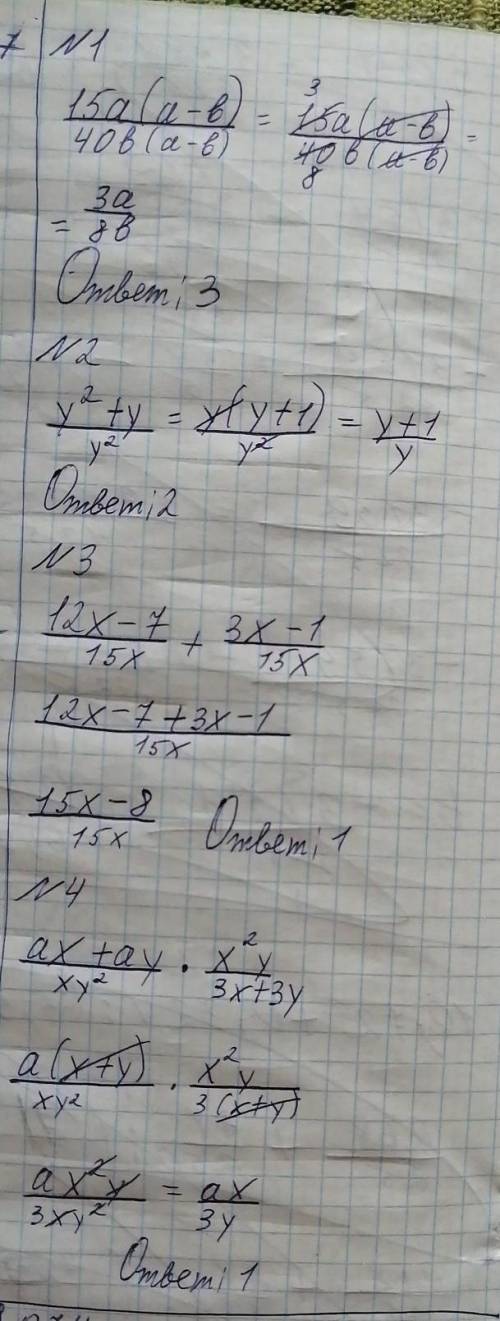 7 N1
15a(a-в)/40в(a-в) = 3 15a(a-в)/40 8 в(a-в) =
= 3a/8в
Ответ: 3
N2
(y²+y)/y² = y(y+1)/y² = (y+1)/y
Ответ: 2
N3
(12x-7)/15x + (3x-1)/15x
(12x-7+3x-1)/15x
(15x-8)/15x Ответ: 1
N4
(ax+ay)/xy² · x²y/(3x+3y)
a(x+y)/xy² · x²y/3(x+y)
ax²y/3xy² = ax/3y
Ответ: 1